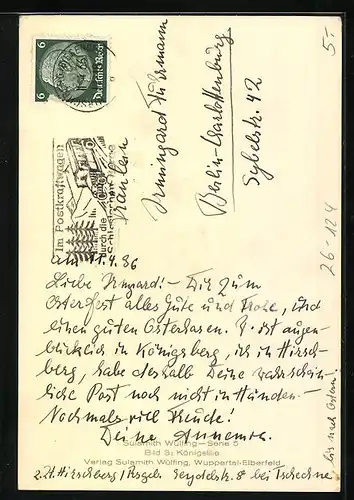 5.-
6
Deutsches Reich
6
Im Postkraftwagen
durch die
Fräulein
Irmingard Fuhrmann
Berlin-Charlottenburg
Sybelstr. 42
26-124
am 11.4.36
Liebe Irmgard! – Dir zum
Osterfest alles Gute und Frohe, und
einen guten Osterhasen. ist augen-
blicklich in Königsberg, ich in Hirsch-
berg, habe deshalb Deine wahrschein-
liche Post noch nicht in Händen –
Nochmals viel Freude!
Deine Annemie.
Sulamith Wülfing – Serie 5
Bild 3: Königslilie
Verlag Sulamith Wülfing, Wuppertal-Elberfeld
z.Zt. Hirschberg/Rsgb. Seydelstr. 8 bei
bis nach Ostern